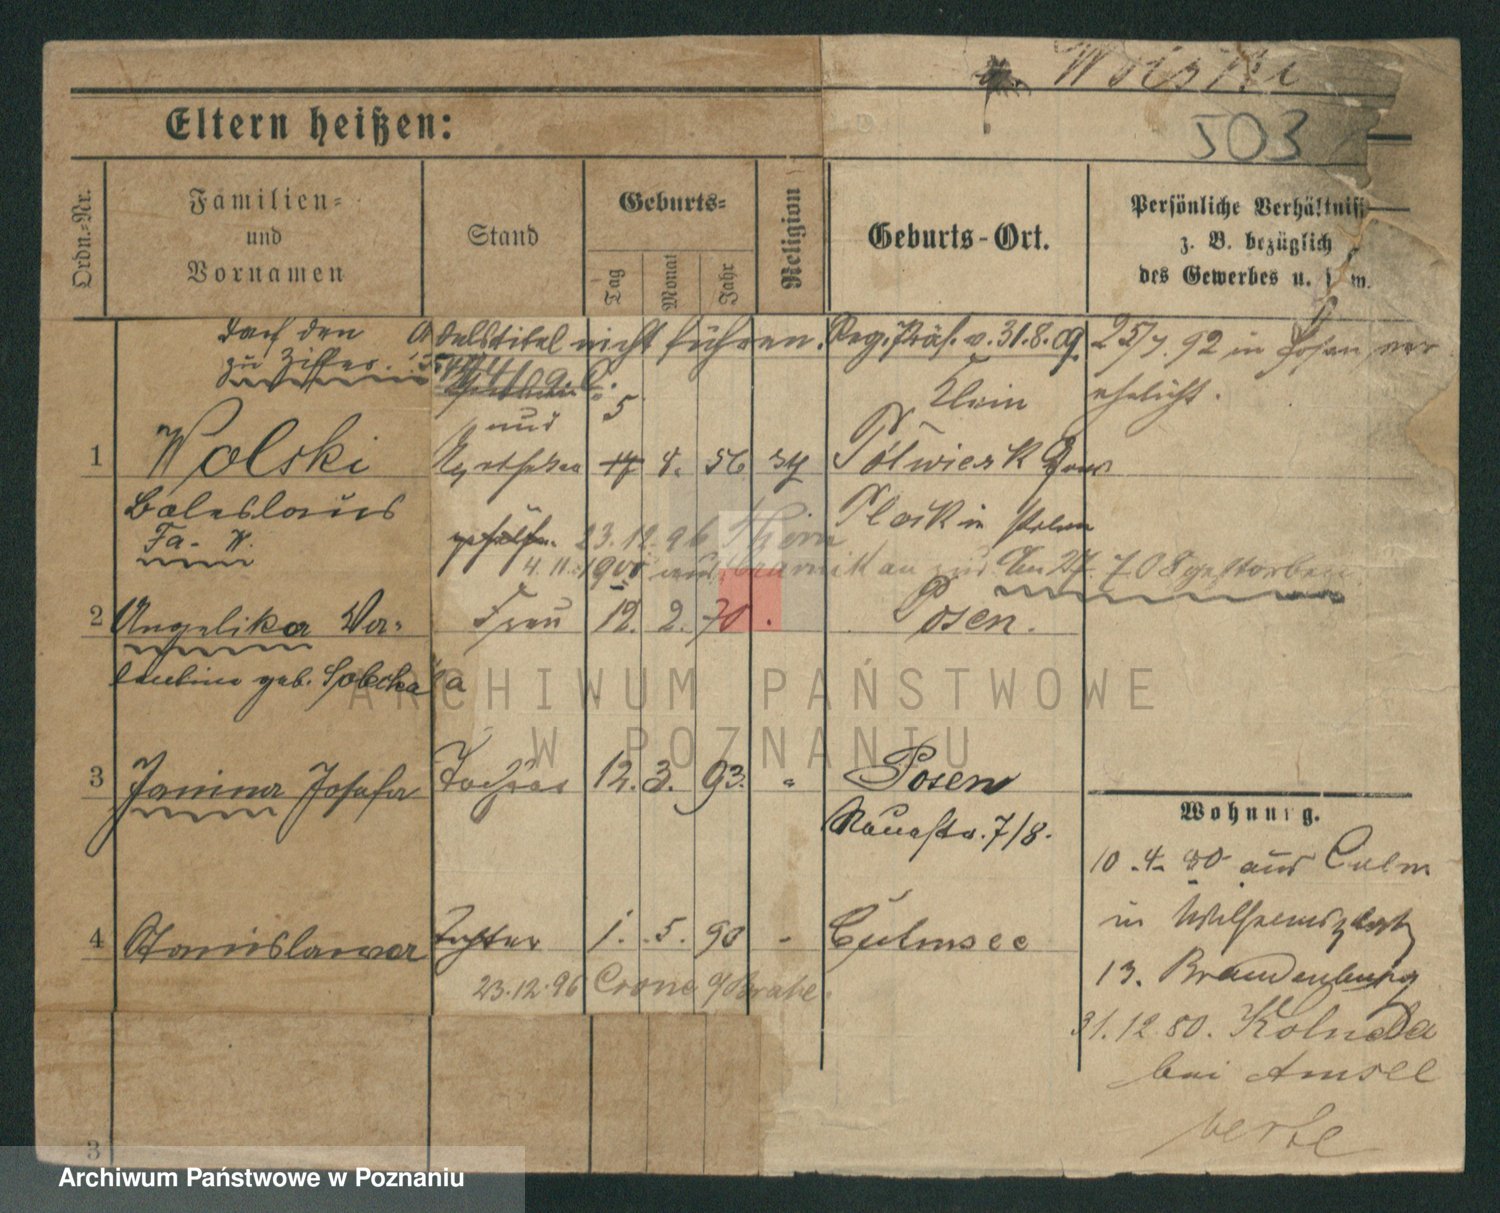 Wolski
503
Eltern heißen:
Ordn.-Nr.
Familien-
und
Vornamen
Stand
Geburts-
Tag
Monat
Jahr
Religion
Geburts-Ort.
Persönliche Verhältniss
z. B. bezüglich
des Gewerbes u. s. w.
Darf den Adelstitel nicht führen. Reg. Präs. v. 31.8.09.
zu Ziffer
25/7.92 in Posen ver
ehelicht.
und
5
Klein
1 Wolski 17 4. 56
Boleslaus
Fa. W.
Plock in Polen
23.12.96 Thorn
4.11.1900 aus
Am 27.7.08 gestorben.
2 Angelika Va-
lentine geb. Sobecka
Frau 12. 2. 70 Posen.
3 Janina Josefa Tochter 12. 3. 93. " Posen
Nauestr. 7/8.
4 Stanislawa Tochter 1. 5. 90 - Culmsee
23.12.96 Crone a/Brahe.
Wohnung.
10.4.80 aus Culm
in Wilhelmsplatz
13. Brandenburg
31.12.80. Kolneda
bei Amsee
3
ARCHIWUM PAŃSTWOWE
W POZNANIU
Archiwum Państwowe w Poznaniu